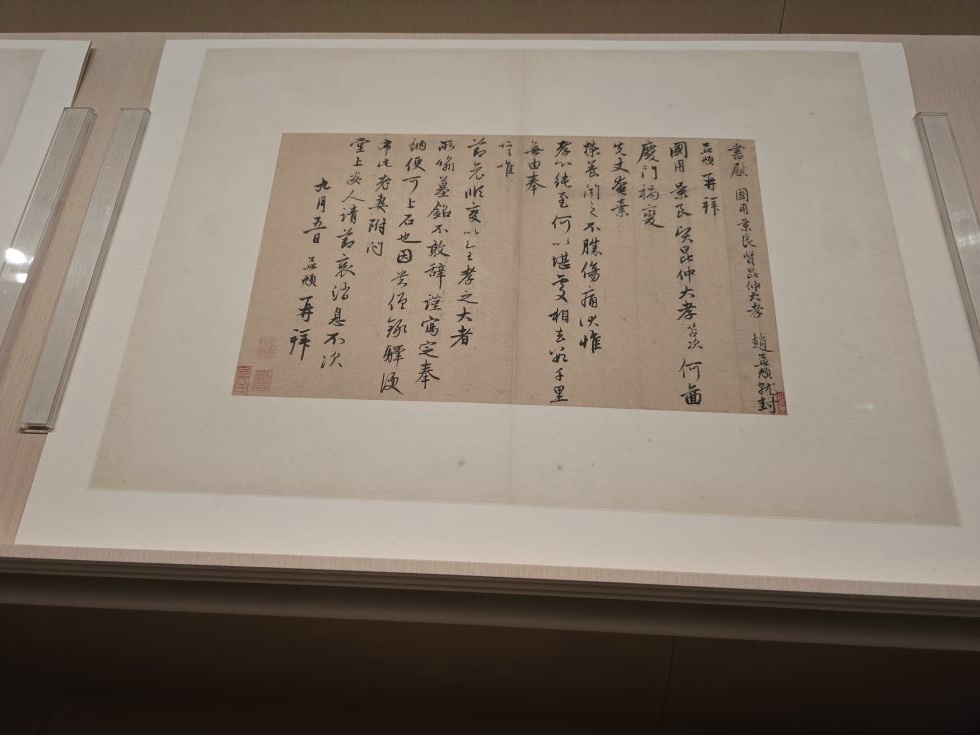 書慰 國用 景良 賢昆仲大孝 趙孟頫就封
孟頫再拜
國用 景良賢昆仲大孝苫次何啚
慶門禍變
先丈奄棄
榮養聞之不勝傷痛伏惟
孝心純至何以堪處相去數千里
無由奉
唁惟
節哀順變以全孝之大者
所喻墓銘不敢辭謹寫定奉
納便可上石也因
驛便
布此老妻附問
堂上安人請節哀深息不次
九月五日 孟頫再拜